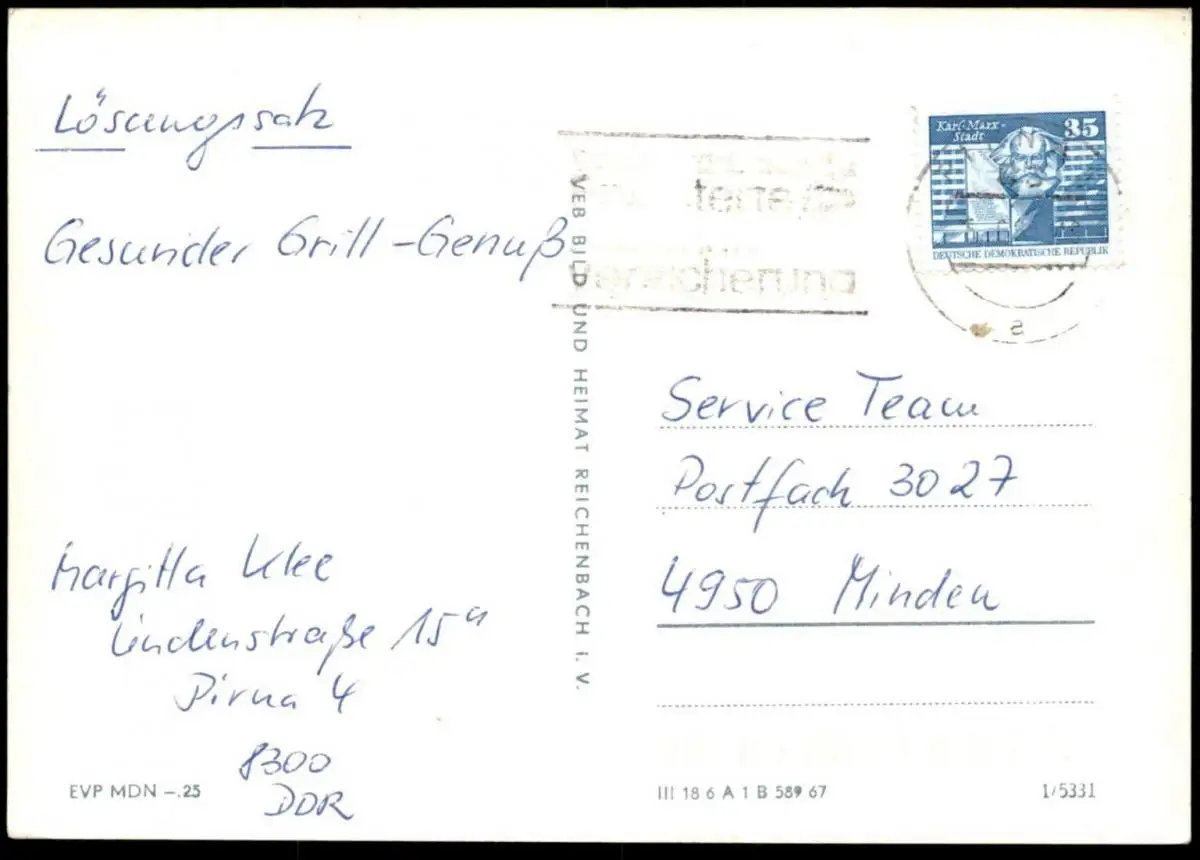 Lösungssatz
Gesunder Grill-Genuß
Margitta Klee
Lindenstraße 15a
Pirna 4
8300
DDR
EVP MDN –.25
VEB BILD UND HEIMAT REICHENBACH I. V.
Karl-Marx-
Stadt
35
DEUTSCHE DEMOKRATISCHE REPUBLIK
a
Service Team
Postfach 3027
4950 Minden
III 18 6 A 1 B 589 67
1/5331